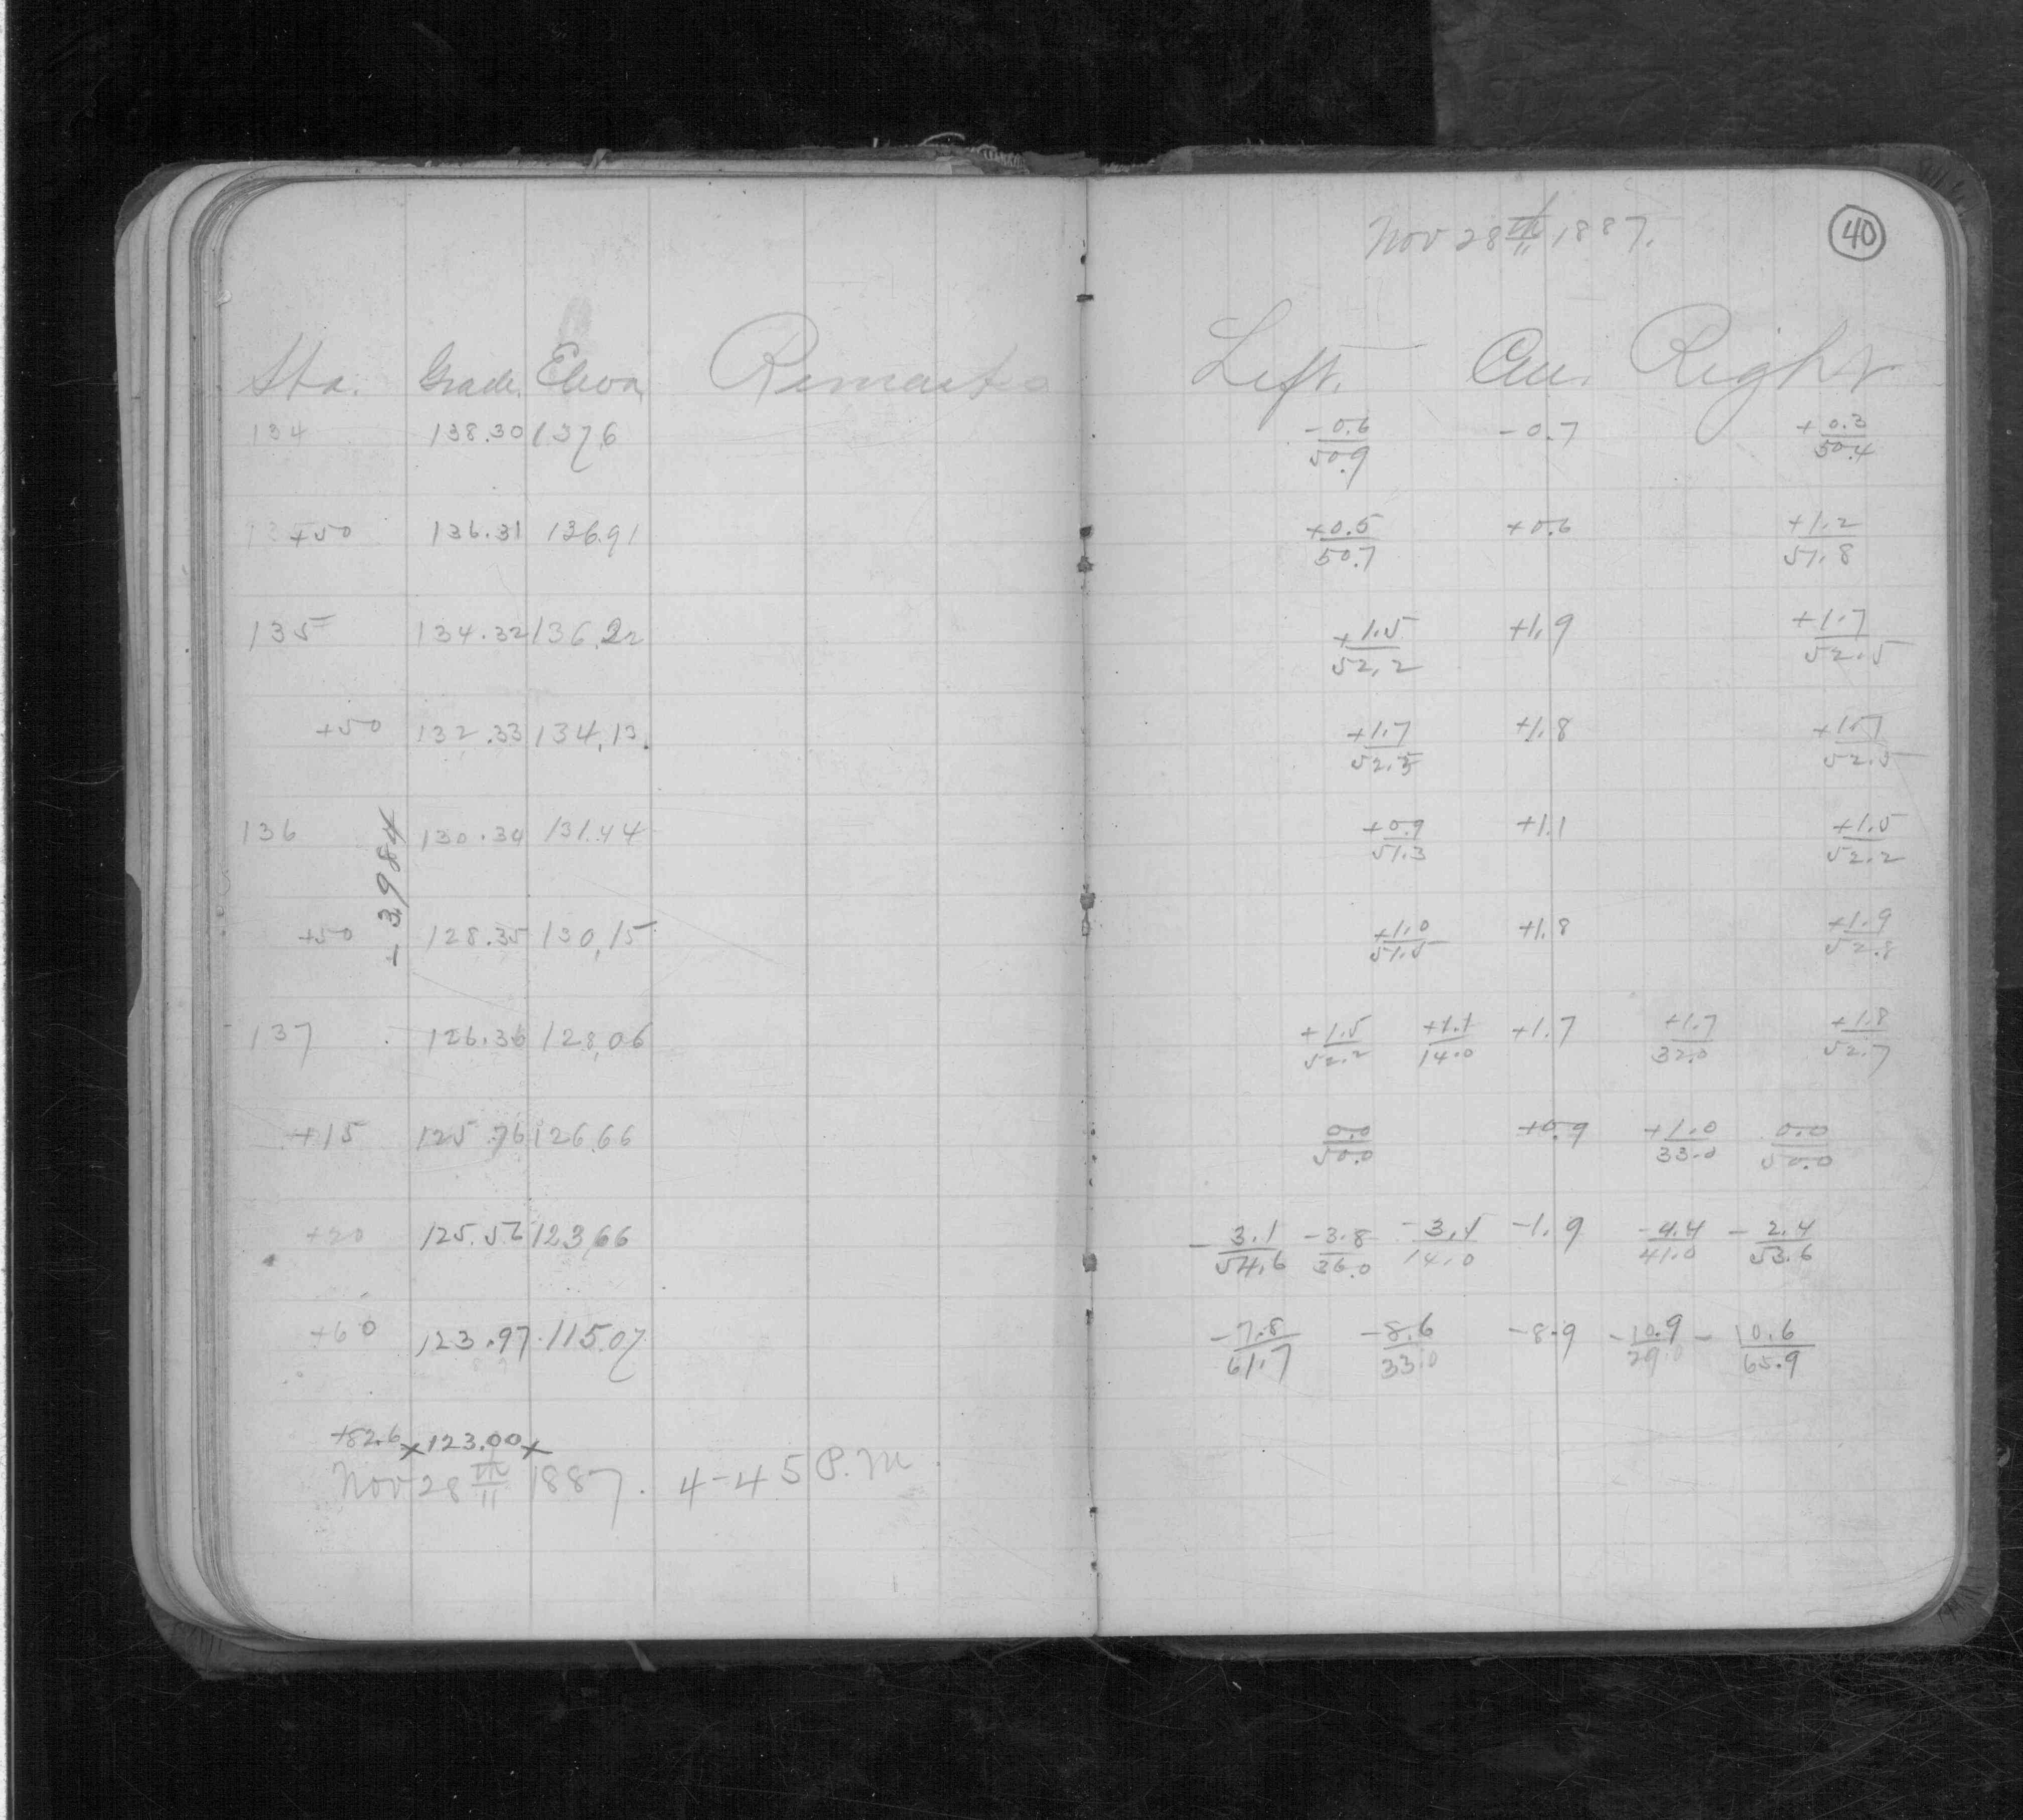 Sta. Grade Eleva Remarks
134 138.30 137.6
+50 136.31 136.91
135 134.32 136.22
+50 132.33 134.13.
136 130.34 131.44
- 3.984
+50 128.35 130.15
137 126.36 128.06
+15 125.76 126.66
+20 125.56 123.66
+60 123.97 115.07
+82.6 x 123.00 x
Nov 28th 1887. 4-45 P.M.
Nov 28th 1887. 40
Left. Cen. Right
-0.6/50.9 -0.7 +0.3/50.4
+0.5/50.7 +0.6 +1.2/51.8
+1.5/52.2 +1.9 +1.7/52.5
+1.7/52.5 +1.8 +1.7/52.5
+0.9/51.3 +1.1 +1.5/52.2
+1.0/51.5 +1.8 +1.9/52.8
+1.5/52.2 +1.1/14.0 +1.7 +1.7/32.0 +1.8/52.7
0.0/50.0 +0.9 +1.0/33.0 0.0/50.0
-3.1/54.6 -3.8/36.0 /14.0 -1.9 -4.4/41.0 -2.4/53.6
-7.8/61.7 -8.6/33.0 -8.9 -10.9/29.0 -10.6/65.9